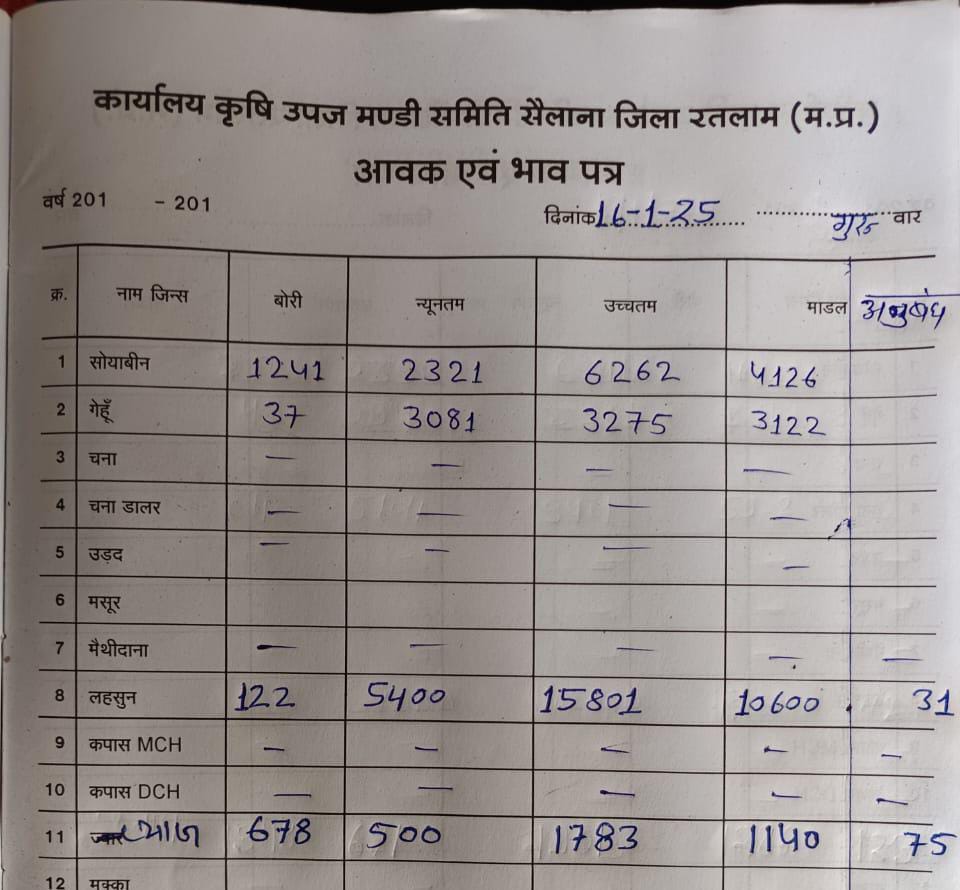 कार्यालय कृषि उपज मण्डी समिति सैलाना जिला रतलाम (म.प्र.)
आवक एवं भाव पत्र
वर्ष 201 - 201 दिनांक 16-1-25 गुरु वार
क्र. नाम जिन्स बोरी न्यूनतम उच्चतम माडल अनुबंध
1 सोयाबीन 1241 2321 6262 4126
2 गेहूँ 37 3081 3275 3122
3 चना — — — —
4 चना डालर — — — —
5 उड़द — — — —
6 मसूर
7 मैथीदाना — — — — —
8 लहसुन 122 5400 15801 10600 31
9 कपास MCH — — — — —
10 कपास DCH — — — — —
11 ज्वार 678 500 1783 1140 75
12 मक्का